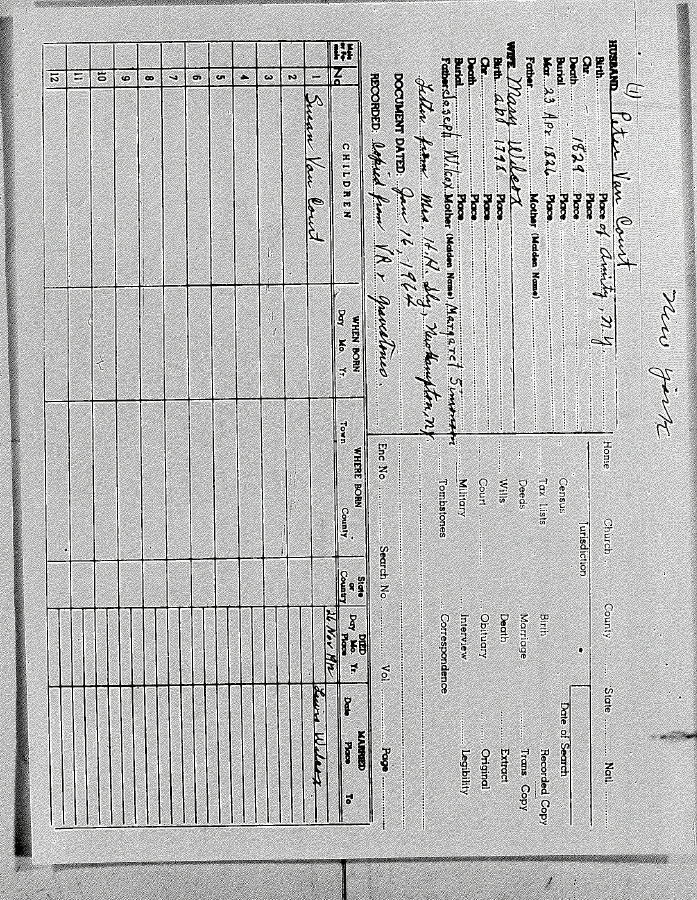 New York
(1) Peter Van Court
HUSBAND
Birth Place of Amity, N.Y.
Chr. Place
Death 1829 Place
Burial Place
Mar. 23 Apr 1826 Place
Father Mother (Maiden Name)
WIFE Mary Wilcox
Birth abt 1798 Place
Chr. Place
Death Place
Burial Place
Father Joseph Wilcox Mother (Maiden Name) Margaret Simonson
Letter from Mrs. H.H. Sly, Newhampton, N.Y.
DOCUMENT DATED: Jan 16, 1962
RECORDED: Copied from VR & gravestones.
Home Church County State Natl.
Jurisdiction
Census Date of Search
Tax Lists Birth Recorded Copy
Deeds Marriage Trans Copy
Wills Death Extract
Court Obituary Original
Military Interview Legibility
Tombstones Correspondence
Enc No. Search No. Vol Page
Male or Fe- male No. CHILDREN WHEN BORN Day Mo. Yr. WHERE BORN Town County State or Country DIED Day Mo. Yr. Place MARRIED Date Place To
26 Nov 1912
1 Susan Van Court Lewis Wilcox
2
3
4
5
6
7
8
9
10
11
12